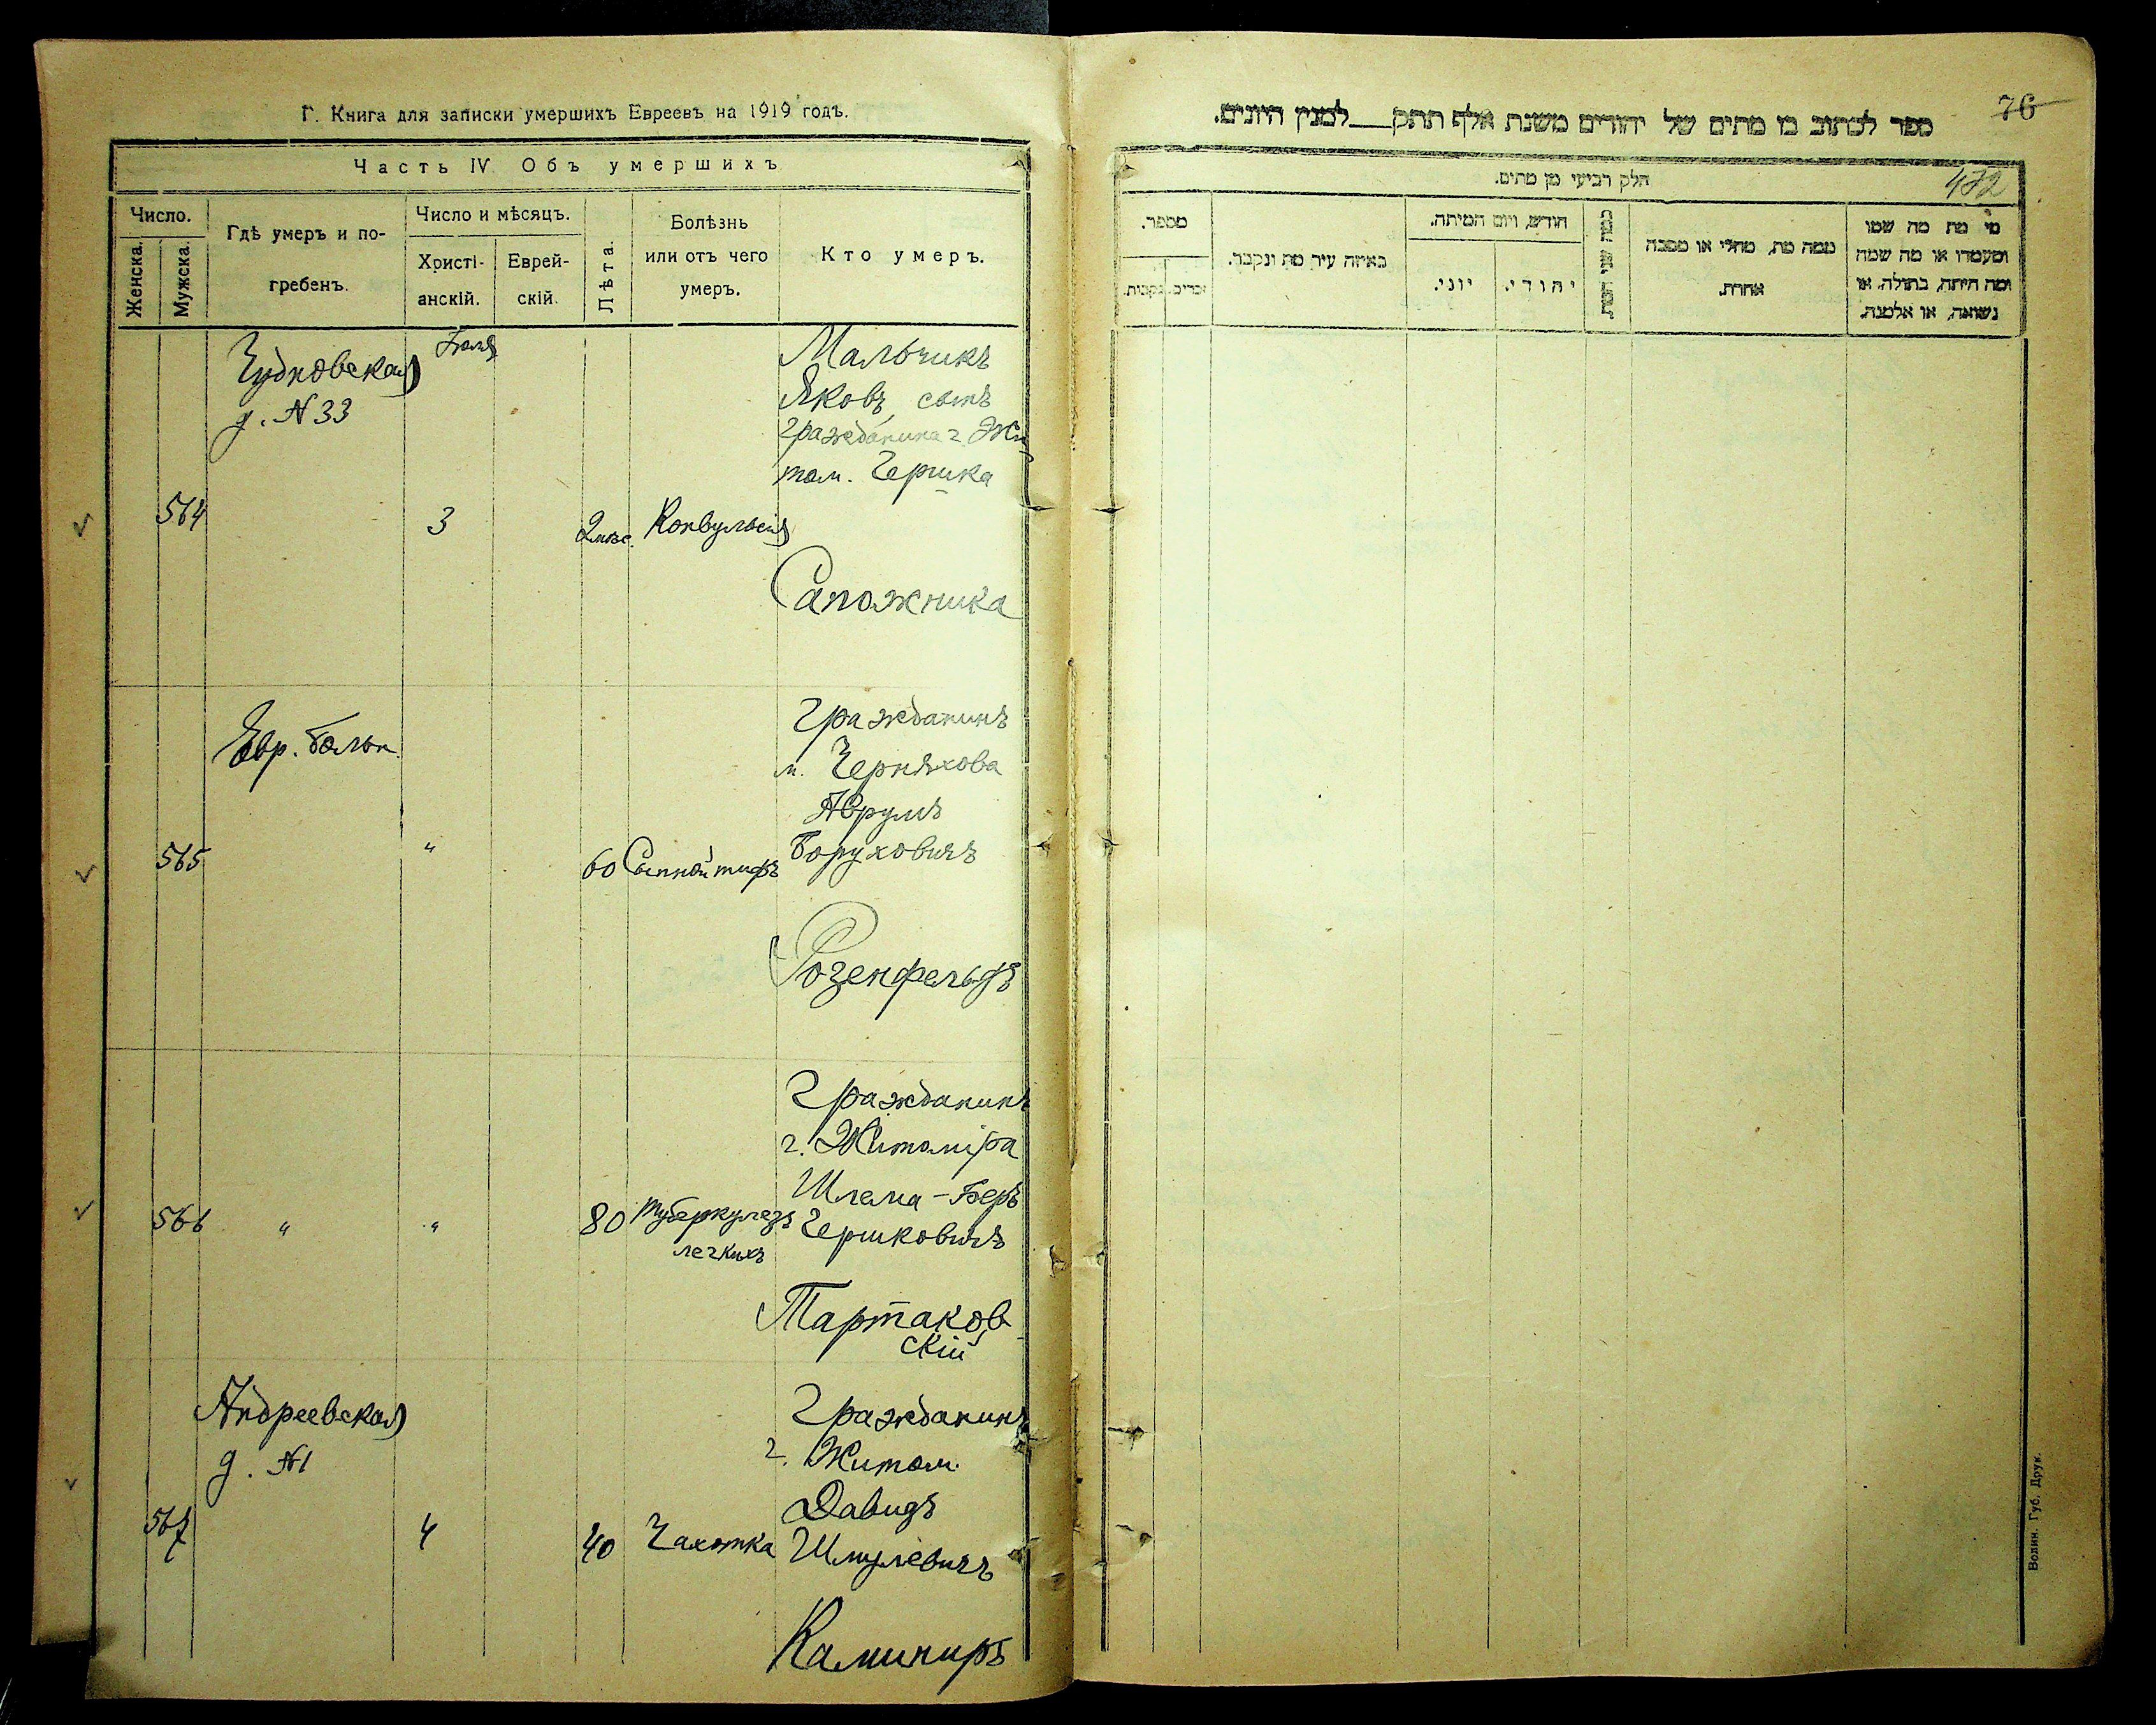 Г. Книга для записки умершихъ Евреевъ на 1919 годъ.
Часть IV. Объ умершихъ
Число.
Женска.
Мужска.
Гдѣ умеръ и по-
гребенъ.
Число и мѣсяцъ.
Христі-
анскій.
Еврей-
скій.
Лѣта.
Болѣзнь
или отъ чего
умеръ.
Кто умеръ.
Чудновская
д. № 33
564
3
2 мѣс.
Конвульсія
Мальчикъ
Яковъ, сынъ
гражданина г. Жи
том. Гершка
Сапожника
Евр. больн.
565
"
60
Сыпной тифъ
Гражданинъ
м. Черняхова
Аврумъ
Боруховичъ
Розенфельдъ
566
"
"
80
туберкулезъ
легкихъ
Гражданинъ
г. Житоміра
Шлема-Беръ
Гершковичъ
Тартаков
скій
Андреевская
д. №1
567
4
40
Чахотка
Гражданинъ
г. Житом.
Давидъ
Шмулевичъ
Калиниръ
76
ספר לכתוב בו מתים של יהודים משנת אלף תתק___למנין היונים.
472
חלק רביעי מן מתים.
מי מת מה שמו
ומעמדו או מה שמה
ומה היתה, בתולה, או
נשואה, או אלמנה.
ממה מת, מחלי או מסבה
אחרת.
כמה שני המת
חודש, ויום המיתה.
יהודי.
יוני.
באיזה עיר מת ונקבר.
מספר.
זכרים.
נקבות.
Волин. Губ. Друк.